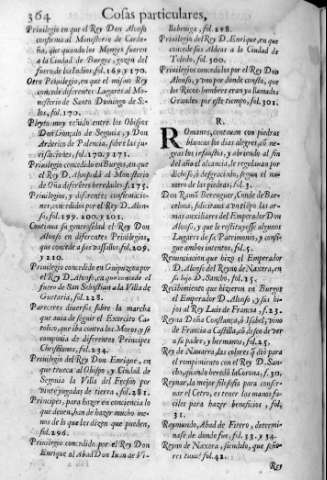 364 Cosas particulares,
Privilegio en que el Rey Don Alonso
confirma al Monasterio de Cardeña,
que quando los Monges fueren
a la Ciudad de Burgos, gozen del
fuero de los Infantes, fol. 169. y 170.
Otro Privilegio, en que el mismo Rey
concede diferentes Lugares al Monasterio
de Santo Domingo de Silos,
fol. 170.
entre los Obispos
Don Gonçalo de Segovia, y Don
de Palencia, sobre las
fol. 170. y 171.
Privilegio concedido en Burgos, en que
el Rey D. Alonso dà al Monasterio
de Oña diferentes heredades, f. 175.
Privilegios, y diferentes
concedidas por el Rey D. Alonso,
fol. 199. 200. y 201.
Continua su generosidad el Rey Don
Alonso en diferentes Privilegios,
que concede a sus vassallos, fol. 209.
y 210.
Privilegio concedido en Guipuzcoa por
el Rey D. Alonso, en que concede el
fuero de San Sebastian a la Villa de
Guetaria, fol. 228.
Pareceres diversos sobre la marcha
que avia de seguir el Exercito Catolico,
que iba contra los Moros, y se
componia de diferentes Principes
Christianos, fol. 234.
Privilegio del Rey Don Enrique, en
que trueca al Obispo, y Ciudad de
Segovia la Villa del
yugadas de tierra, fol. 281.
Principes, para hazer en conciencia lo
que deven, han de hazer mucho menos
de lo que les dizen que pueden,
fol. 296.
Privilegio concedido por el Rey Don
Enrique al Abad Don Iuan de
fol. 298.
Privilegio del Rey D. Enrique, en que
concede su Aldeas a la Ciudad de
Toledo, fol. 300.
Privilegios concedidos por el Rey Don
Alonso, y uno por donde consta, que
los Ricos-hombres eran ya llamados
Grandes por este tiempo, fol. 301.
R.
Romanos, contavan con piedras
blancas los dias alegres, con negras
los infaustos, y abriendo al fin
del año el alcancia, le regulavan por
dichoso, ò desgraciado, segun el numero
de las piedras, fol. 3.
Don Ramõ Berenguer, Conde de Barcelona,
solicitava a valerse de las armas
auxiliares del Emperador Don
Alonso, y que le restituyesse algunos
Lugares de su Patrimonio, y consigue
ambos intentos, fol. 5.
Renunciacion que hizo el Emperador
D. Alonso del Reyno de Naxera, en
su hijo D. Sancho, fol. 15.
Recibimiento que hizieron en Burgos
el Emperador D. Alonso, y sus hijos
al Rey Luis de Francia, f. 23.
Reyna Doña Constança, ò Isabel, vino
de Francia a Castilla, cõ deseo de ver
a su padre, y hermanos, fol. 25.
Rey de Navarra, las colores q̃ diò para
el rompimiento con el Rey D. Sancho,
quando heredò la Corona, f. 30.
Reynar, la mejor filosofia para conservar
el Cetro, es tener las manos faciles
para hazer beneficios, fol.
31.
Raymundo, Abad de Fitero, determinase
de donde fue, fol. 33. y 34.
Reyno de Navarra, feudo, que
fol. 42.
Rey